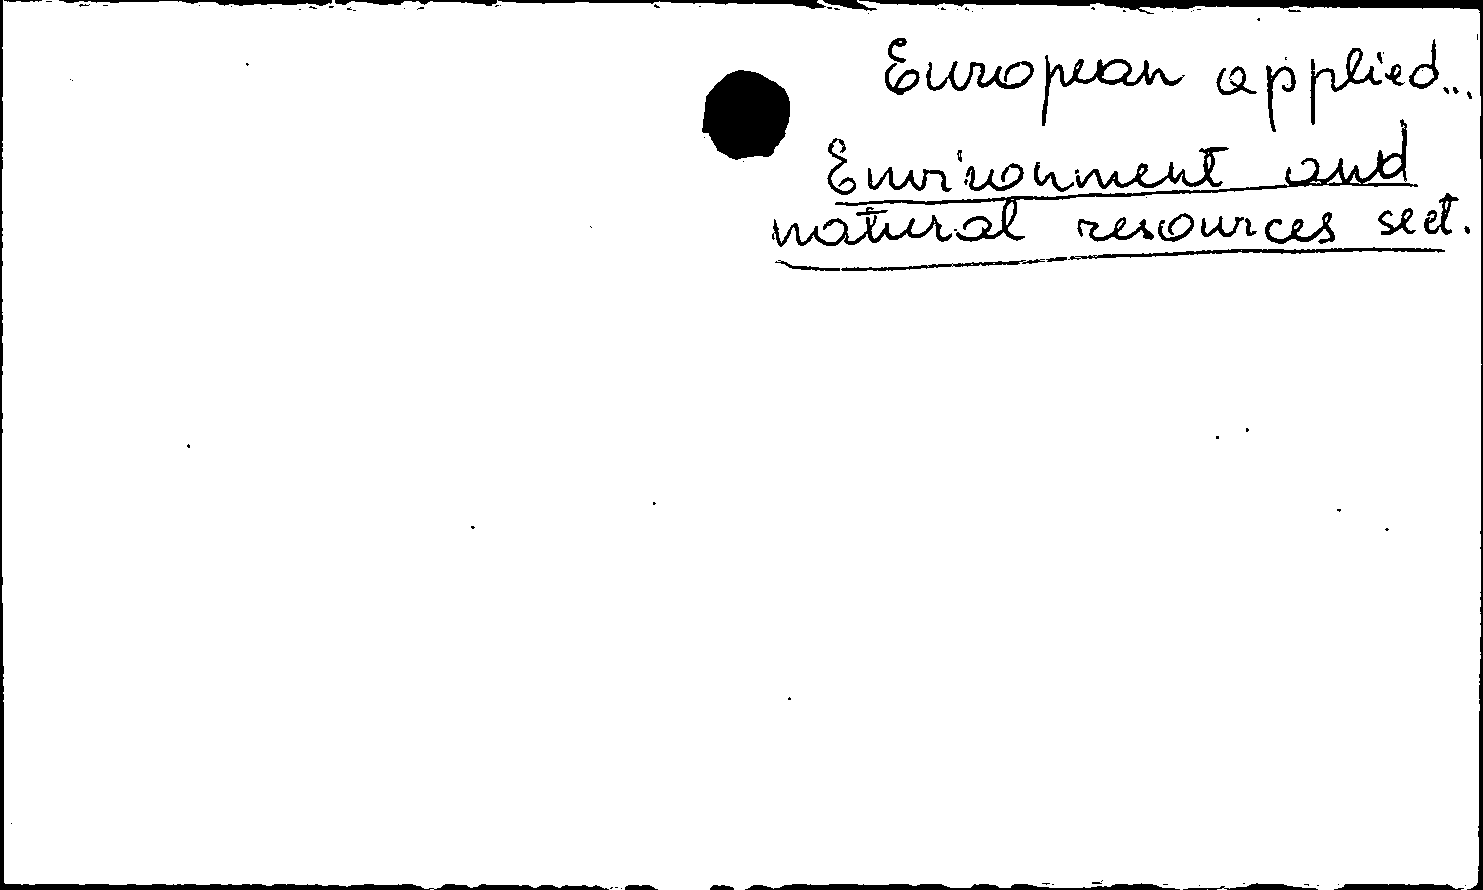 European applied...
Environment and
natural resources sect.